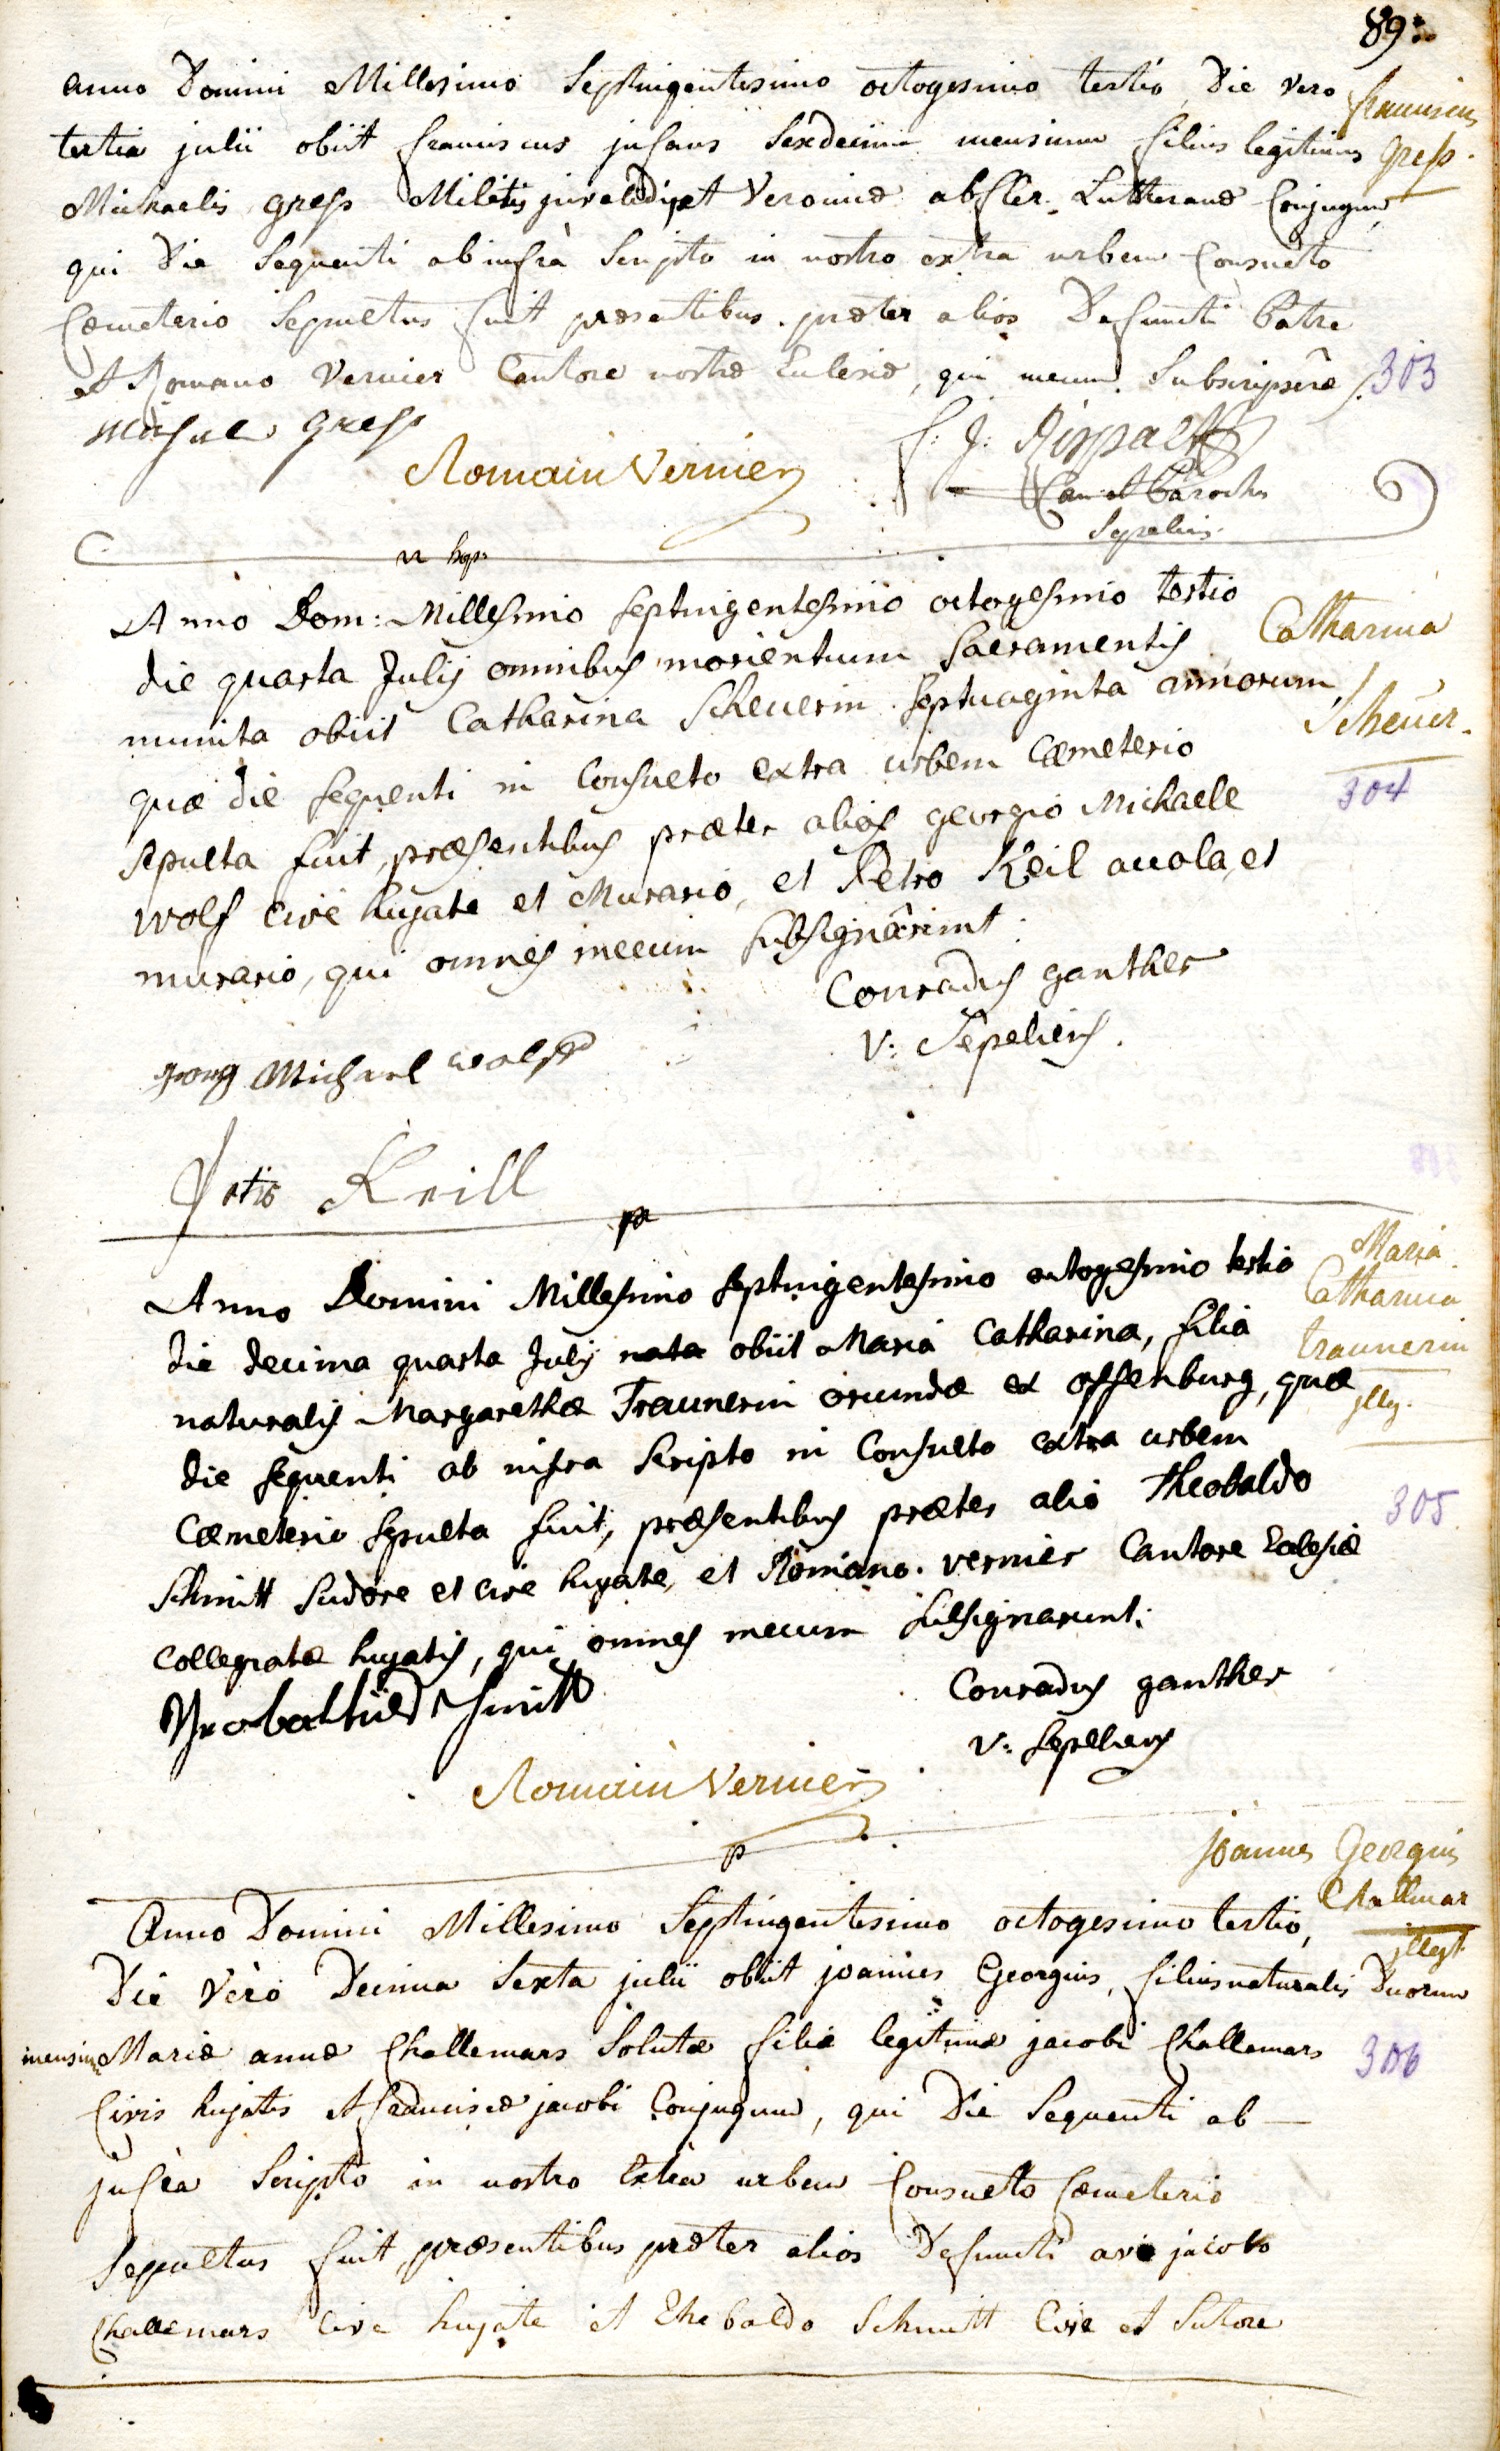 89:
anno Domini Millesimo Septingentesimo octogesimo tertio, Die vero
Franciscus
tertia julii obiit franciscus jnfans Sexdecim mensium filius legitimus
Gress.
Michaelis gress Militis et Veronicæ Lutheranæ Conjugum,
qui Die Sequenti ab infrà Scripto in nostro extra urbem Consueto
Cœmeterio Sepultus fuit præsentibus præter alios Defuncti Patre
et Romano Vernier Cantore nostræ Ecclesiæ, qui mecum Subscripsêre
303
Michael gress
F: J: Rispal
Romain Vernier
Can: et Parochus
Sepeliens
Anno Dom: Millesimo septuigentesimo octogesimo tertio
die quarta Julij omnibus morientium sacramentis
Catharina
munita obiit Catharina Scheuerin septuaginta annorum
Scheuer.
quæ die sequenti in Consueto extra urbem Cæmeterio
304
sepulta fuit, præsentibus præter alios georgio Michaele
Wolf cive hujate et Murario, et Petro Keil accola, et
murario, qui omnes mecum subsignârunt.
Conradus ganther
v: Sepeliens.
georg Michael wolff
Petis Keill
Anno Domini Millesimo septuigentesimo octogesimo tertio
Maria
Catharina
die decima quarta Julij nata obiit Maria Catharina, filia
traunerin
naturalis Margarethæ Traunerin oriundæ ex offenburg, quæ
jlleg.
die sequenti ab infra scripto in Consueto extra urbem
Cæmeterio sepulta fuit, præsentibus præter alio Theobaldo
305
Schmitt sudore et cive hujate, et Romano vernier Cantore Ecclesiæ
Collegiatæ hujatis, qui omnes mecum subsignarunt.
Conradus ganther
v: sepeliens
Romain Vernier
joannes Georgius
Challmar
jllegt.
Anno Domini Millesimo Septingentesimo octogesimo tertio,
Die vero Decima Sexta julii obiit joannes Georgius, filius naturalis Duorum
mensium Mariæ annæ Challemars Solutæ filiæ legitimæ jacobi Challemars
306
Civis hujatis et franciscæ jacobi Conjugum, qui Die Sequenti ab
jnfrà Scripto in nostro Extra urbem Consueto Cœmeterio
Sepultus fuit præsentibus præter alios Defuncti avo jacobo
Challemars Cive hujate et Thebaldo Schmitt Cive et Sutore